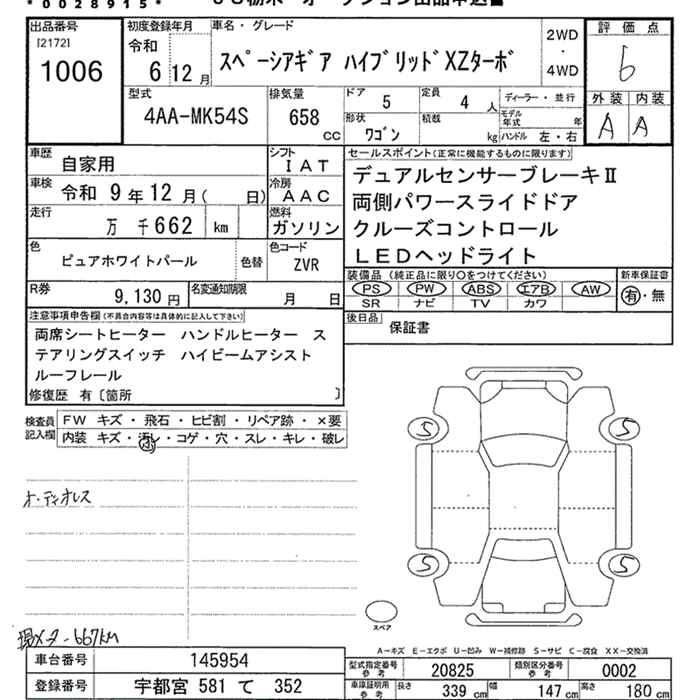 *0028915*
出品番号
[2172]
1006
初度登録年月
令和
6 12 月
車名・グレード
スペーシアギア ハイブリッドXZターボ
2WD
・
4WD
評価点
6
型式
4AA-MK54S
排気量
658
CC
ドア
5
定員
4 人
ディーラー・並行
形状
ワゴン
積載
kg
モデル年式
年
ハンドル 左・右
外装 内装
A A
車歴
自家用
シフト
IAT
車検
令和 9年12月( 日)
冷房
AAC
走行
万 千662 km
燃料
ガソリン
色
ピュアホワイトパール
色替
色コード
ZVR
R券
9,130 円
名変通知期限
月 日
セールスポイント(正常に機能するものに限ります)
デュアルセンサーブレーキⅡ
両側パワースライドドア
クルーズコントロール
LEDヘッドライト
装備品(純正品に限り○をつけてください)
PS PW ABS エアB AW
SR ナビ TV カワ
新車保証書
有・無
後日品
保証書
注意事項申告欄(不具合内容等は具体的に記入して下さい)
両席シートヒーター ハンドルヒーター ス
テアリングスイッチ ハイビームアシスト
ルーフレール
修復歴 有〔箇所 〕
検査員
記入欄
FW キズ・飛石・ヒビ割・リペア跡・×要
内装 キズ・汚レ・コゲ・穴・スレ・キレ・破レ
小
オーディオレス
S S
S S
スペア
A-キズ E-エクボ U-凹み W-補修跡 S-サビ C-腐食 XX-交換済
車台番号
145954
登録番号
宇都宮 581 て 352
型式指定番号
参考
20825
類別区分番号
参考
0002
車庫証明用
参考
長さ 339 cm
幅 147 cm
高さ 180 cm